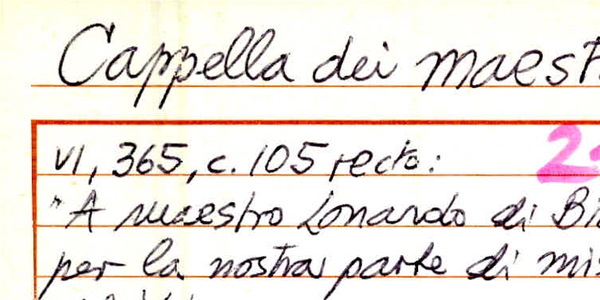 Cappella dei maest
VI, 365, c. 105 recto:
2
"A maestro Lonardo di Bi
per la nostra parte di mis